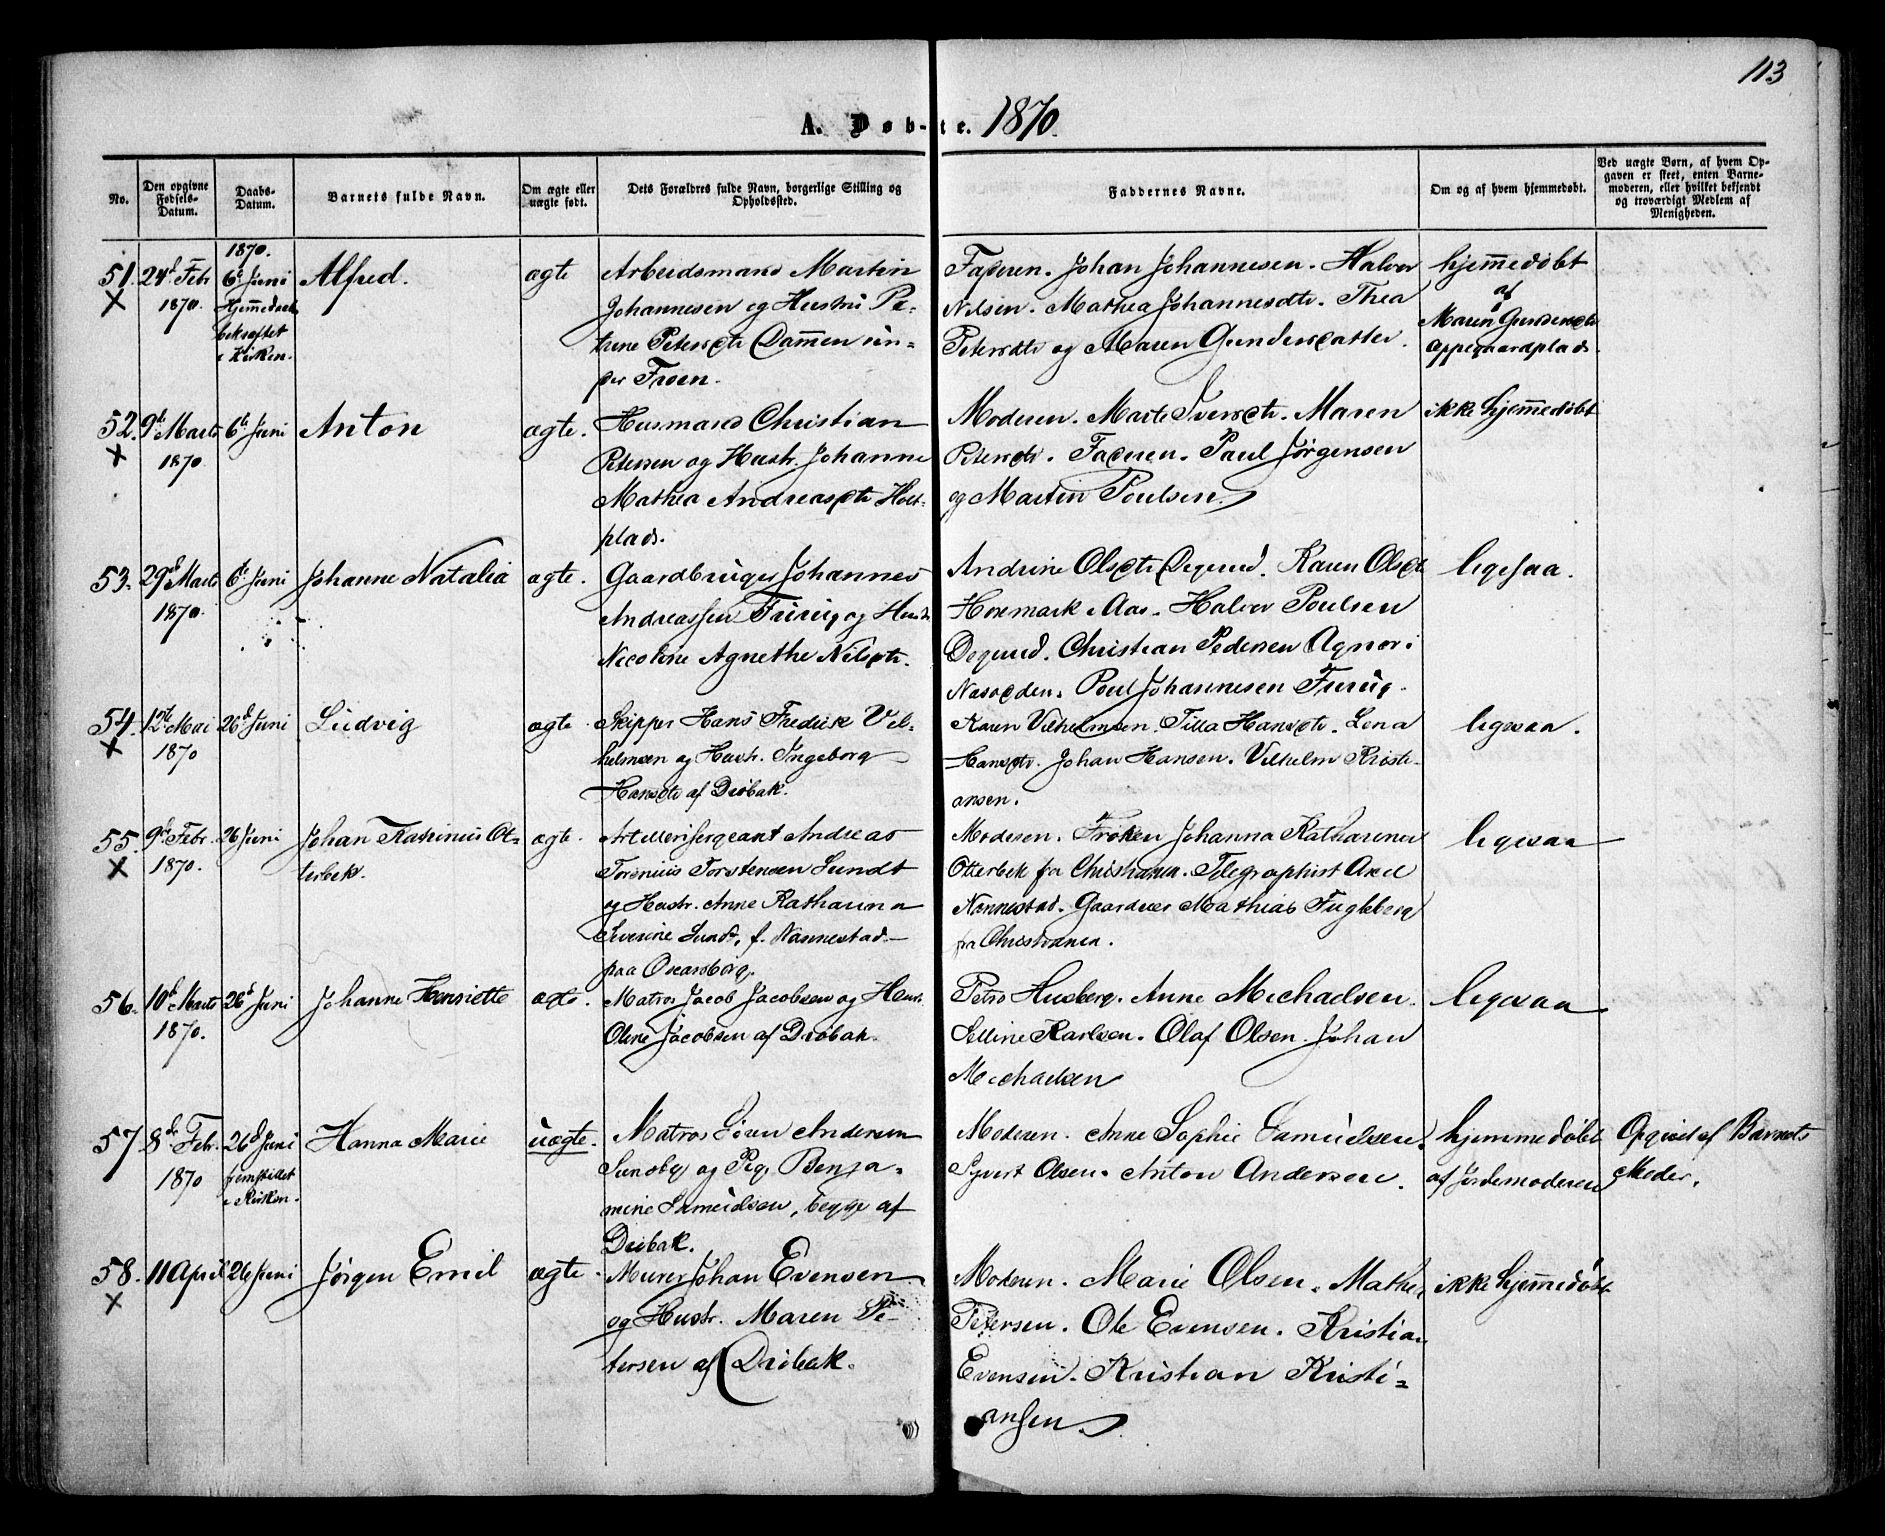 113
A. Døb-te. 1870.
No.
Den opgivne Fødsels-Datum.
Daabs-Datum.
Barnets fulde Navn.
Om ægte eller uægte født.
Dets Forældres fulde Navn, borgerlige Stilling og Opholdssted.
Faddernes Navne.
Om og af hvem hjemmedøbt.
Ved uægte Børn, af hvem Op-
gaven er skeet, enten Barne-
moderen, eller hvilket bekjendt
og troværdigt Medlem af
Menigheden.
1870.
51. 24d Febr 6te Juni Alfred. ægte Arbeidsmand Martin Faderen. Johan Johannesen. Halvor hjemmedøbt
X 1870. Hjemmedaab Johannesen og Hustru Pe- Nilsen. Mathea Johannesdtr. Thea af
bekræftet trine Petersdtr Dammen un- Petersdtr og Maren Gundersdatter. Maren Gundersdtr
i Kirken. der Froen. Oppegaardplads.
52. 9de Marts 6te Juni Anton ægte. Husmand Christian Moderen. Marte Iversdtr. Maren ikke hjemmedøbt
X 1870 Petersen og Hustr. Johanne Petersdtr. Faderen. Paul Jørgensen
Mathea Andreasdtr Holt- og Martin Poulsen.
plads.
53. 29d Marts 6te Juni Johanne Natalia ægte. Gaardbruger Johannes Andrine Olsdtr Degerud. Karen Olsdtr ligesaa.
1870. Andreassen Furuq og Hustr Hormark i Aas. Halvor Poulsen
Nicoline Agnethe Nilsdtr. Degerud. Christian Pedersen Agnor i
Nasodden. Poul Johannesen Furuq.
54. 12te Mai 26d Juni Ludvig ægte Skipper Hans Fredrik Vil- Karen Vilhelmsen. Tilla Hansdtr. Lena ligesaa.
X 1870 helmsen og Hustr. Ingeborg Hansdtr. Johan Hansen. Vilhelm Kristi-
Hansdtr af Drøbak. ansen.
55. 9de Febr. 26 Juni Johan Katrinus Ot- ægte. Artillerisergeant Andreas Moderen. Frøken Johanna Katharina ligesaa
X 1870. terbek. Torenius Torstensen Lundt Otterbek fra Christiania. Telegraphist Axel
og Hustr. Anne Katharina Nannestad. Gaardeier Mathias Fugleberg
Severine Lundt, f. Nannestad fra Christiania.
paa Oscarsborg.
56. 10d Marts 26d Juni Johanne Henriette ægte. Matros Jacob Jacobsen og Hustr. Petro Husberg. Anne Michaelsen. ligesaa
1870. Oline Jacobsen af Drøbak. Selline Karlsen. Olaf Olsen. Johan
Michaelsen
57. 8de Febr. 26d Juni Hanna Marie uægte. Matros Søren Andersen Moderen. Anne Sophie Samuelsen. hjemmedøbt Opgivet af Barnets
1870 fremstillet Sundby og Pig. Benja- Syvert Olsen. Anton Andersen. af Jordemoderen Moder.
i Kirken. mine Samuelsen, begge af
Drøbak.
58. 11 April 26 Juni Jørgen Emil ægte. Murer Johan Evensen Moderen. Marie Olsen. Mathea ikke hjemmedøbt
X og Hustr. Maren Pe- Petersen. Ole Evensen. Kristian
tersen af Drøbak. Evensen. Kristian Kristi-
ansen.